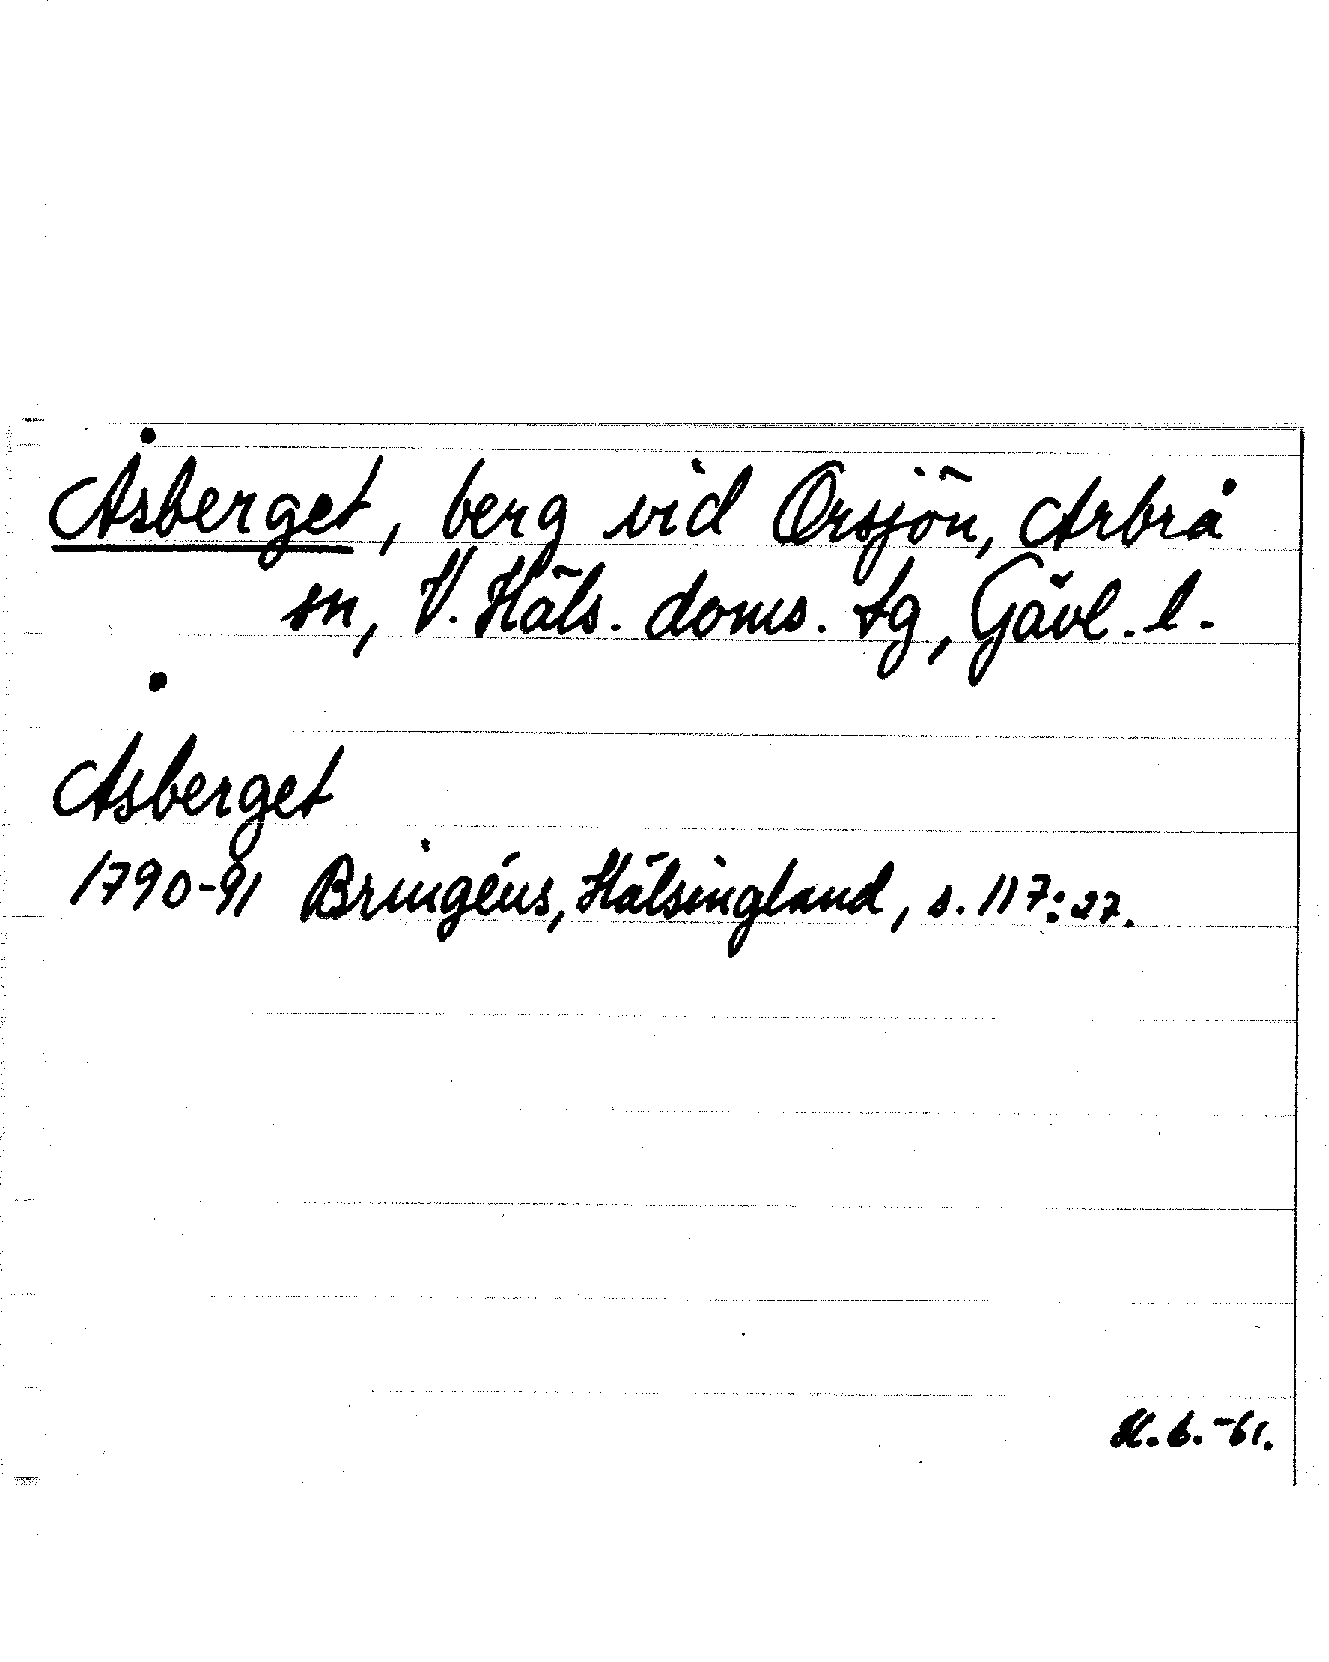 Åsberget, berg vid Orsjön, Arbrå
sn, V. Häls. doms. tg, Gävl. l.
Åsberget
1790-91 Bringéus, Hälsingland, s. 117:27.
H.b.-61.